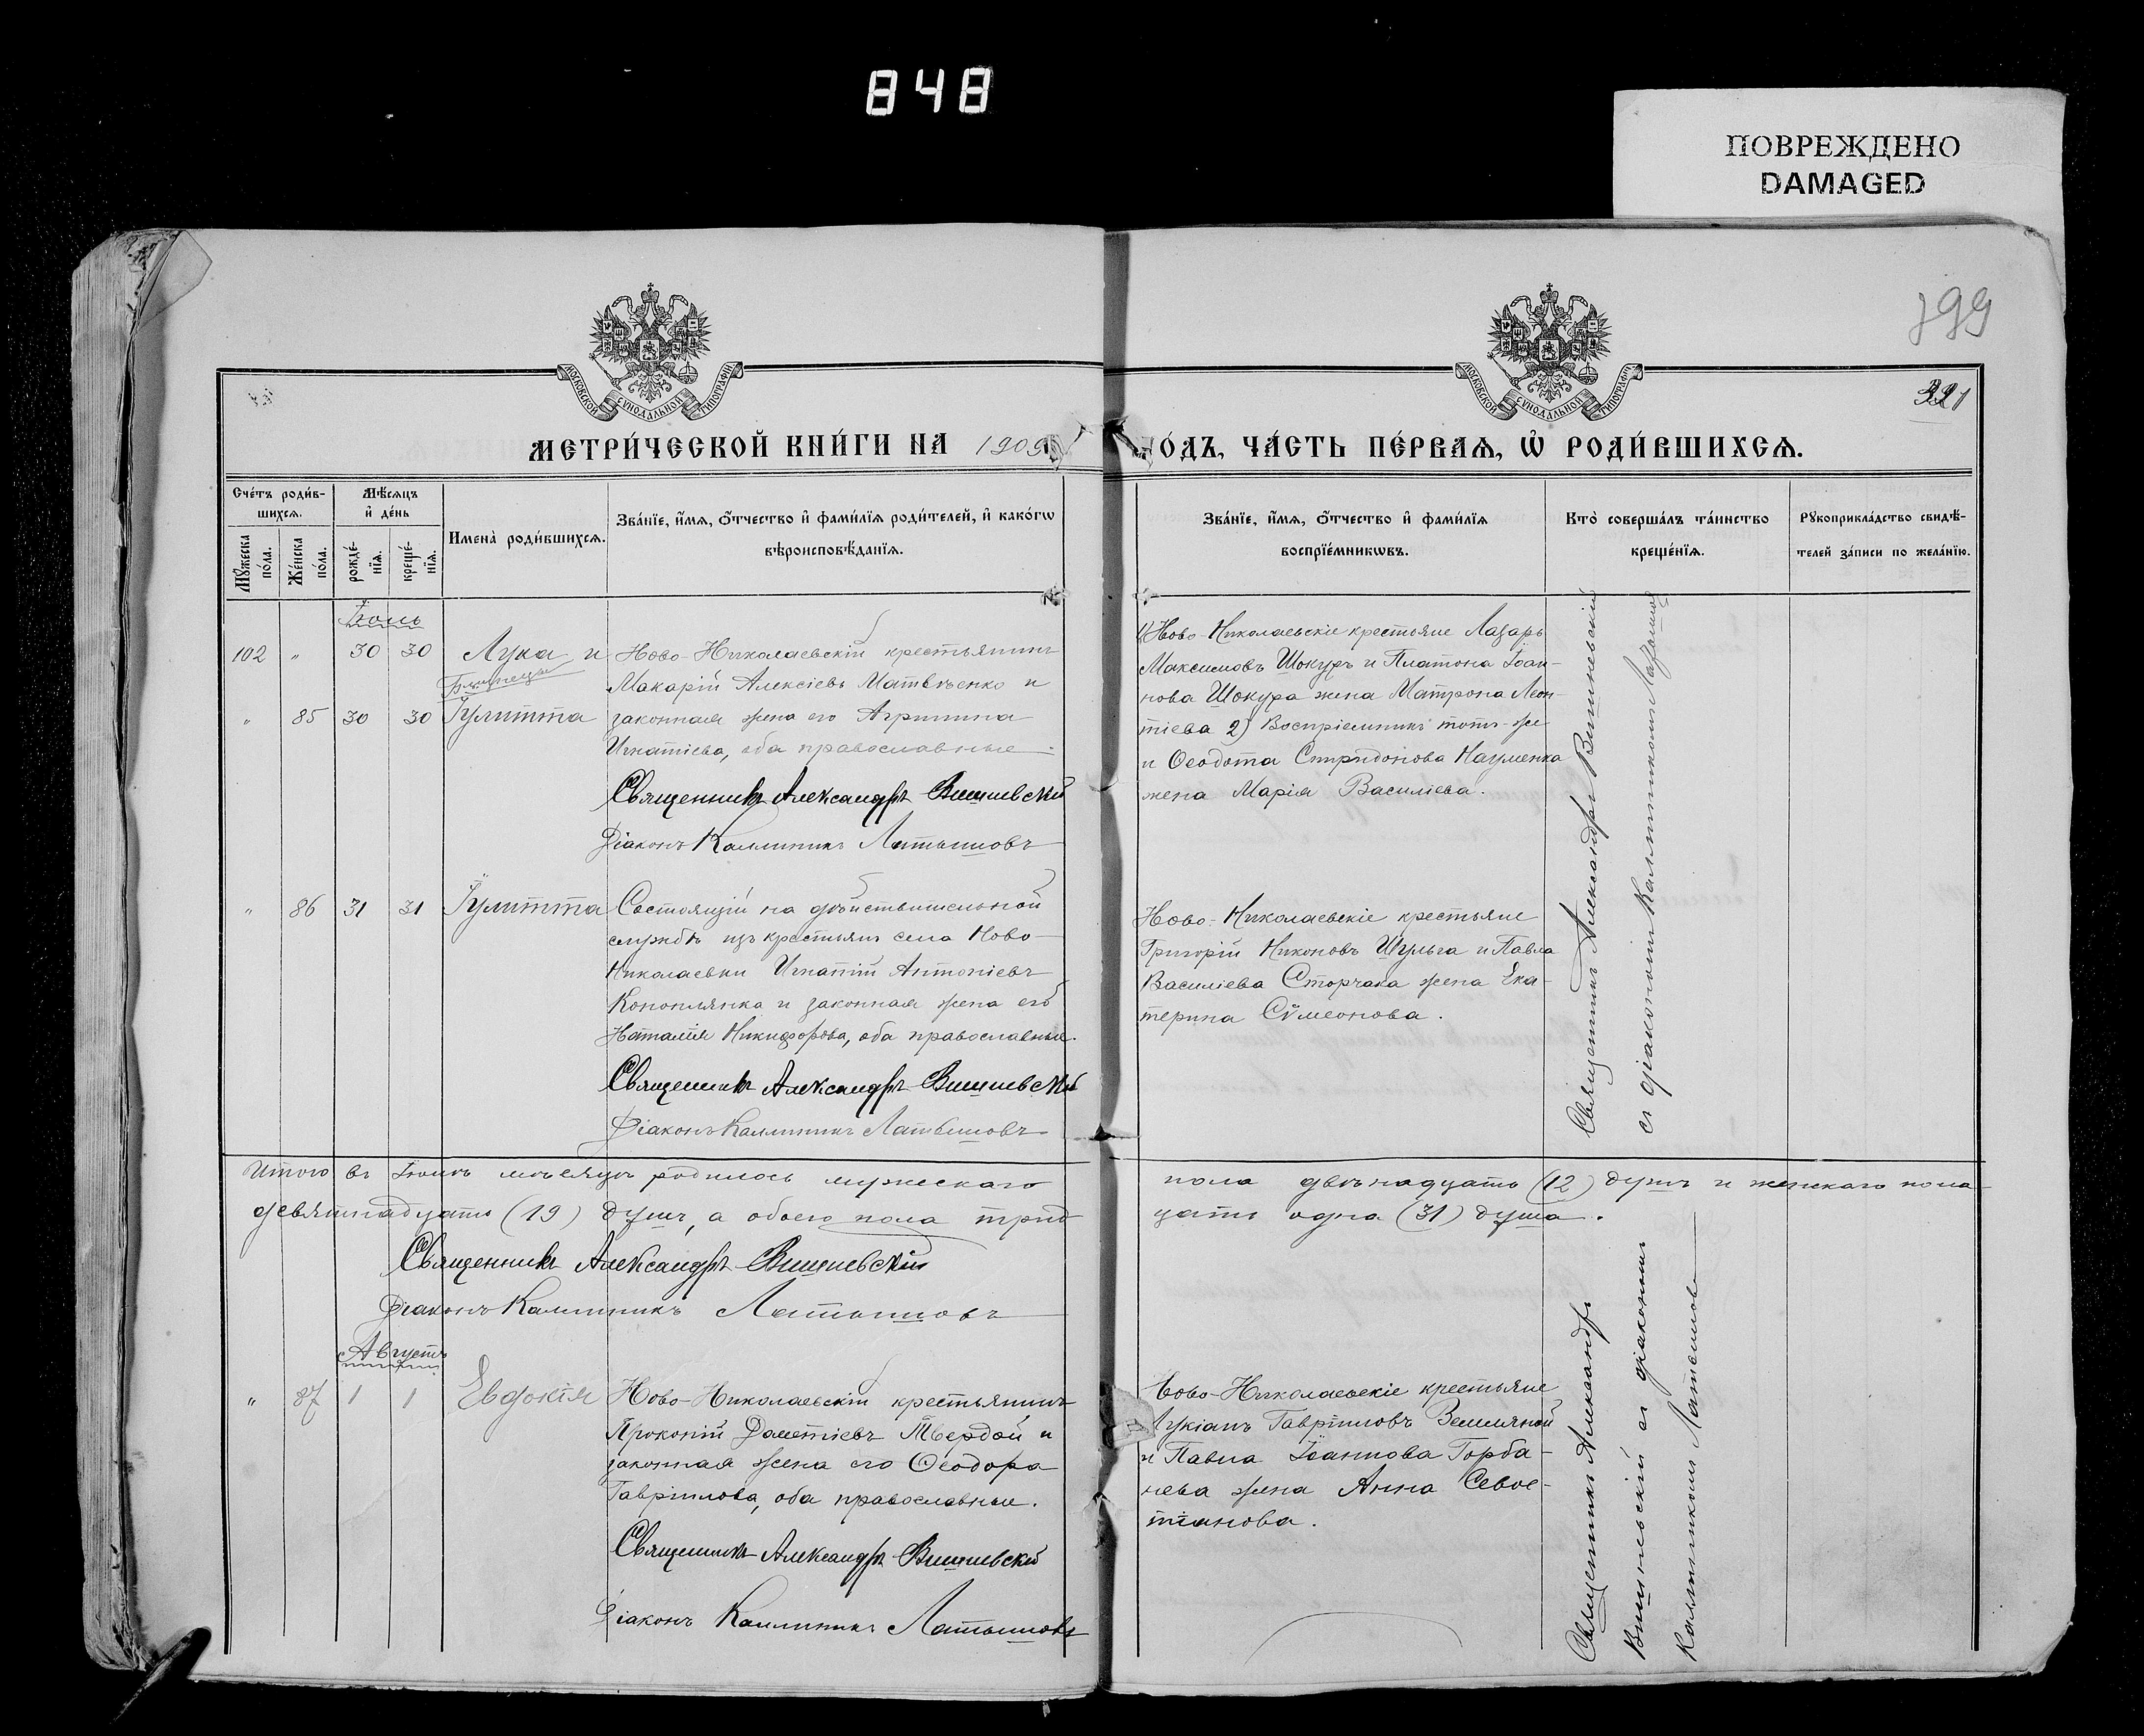 848
ПОВРЕЖДЕНО
DAMAGED
799
321
МОСКОВСКОЙ СѴНОДАЛЬНОЙ ТИПОГРАФІИ
МОСКОВСКОЙ СѴНОДАЛЬНОЙ ТИПОГРАФІИ
МЕТРИ́ЧЕСКОЙ КНИ́ГИ НА 1909
ОДЪ, ЧА́СТЬ ПЕ́РВАѦ, Ѡ҆ РОДИ́ВШИХСѦ.
Сче́тъ роди́в-
шихсѧ.
Мꙋ́жеска по́ла.
Же́нска по́ла.
Мѣ́сѧцъ
и҆ де́нь
рожде́-
нїѧ.
креще́-
нїѧ.
Имена̀ роди́вшихсѧ.
Зва́нїе, и҆́мѧ, ѻ҆́тчество и҆ фами́лїѧ роди́телей, и҆ како́гѡ
вѣроисповѣ́данїѧ.
Зва́нїе, и҆́мѧ, ѻ҆́тчество и҆ фами́лїѧ
воспрїе́мникѡвъ.
Кто̀ соверша́лъ та́инство
креще́нїѧ.
Рꙋкоприкла́дство свидѣ́-
телей за́писи по жела́нїю.
Іюль
102 " 30 30 Лука и
Близнецы
" 85 30 30 Іулитта
Ново-Николаевскій крестьянинъ
Макарій Алексіевъ Матвѣенко и
законная жена его Агриппина
Игнатіева, оба православные.
Священникъ Александръ Вишневскій
Діаконъ Каллиникъ Латышовъ
1) Ново-Николаевскіе крестьяне Лазарь
Максимовъ Шокуръ и Платона Іоан-
нова Шокура жена Матрона Леон-
тіева 2) Воспріемникъ тотъ-же
и Ѳеодота Спиридонова Науменка
жена Марія Василіева.
Священникъ Александръ Вишневскій
съ діакономъ Каллиникомъ Латышовымъ
" 86 31 31 Іулитта
Состоящій на дѣйствительной
службѣ изъ крестьянъ села Ново-
Николаевки Игнатій Антоніевъ
Коноплянка и законная жена его
Наталія Никифорова, оба православные.
Священникъ Александръ Вишневскій
Діаконъ Каллиникъ Латышовъ
Ново-Николаевскіе крестьяне
Григорій Никоновъ Шульга и Павла
Василіева Сторчака жена Ека-
терина Сѵмеонова.
Итого въ Іюлѣ мѣсяцѣ родилось мужескаго пола двѣнадцать (12) душъ и женскаго пола
девятнадцать (19) душъ, а обоего пола тридцать одна (31) душа.
Священникъ Александръ Вишневскій
Діаконъ Каллиникъ Латышовъ
Августъ
" 87 1 1 Евдокія
Ново-Николаевскій крестьянинъ
Прокопій Дометіевъ Твердой и
законная жена его Ѳеодора
Гавріилова, оба православные.
Священникъ Александръ Вишневскій
Діаконъ Каллиникъ Латышовъ
Ново-Николаевскіе крестьяне
Лукіанъ Гавріиловъ Земляной
и Павла Іоаннова Горба-
нева жена Анна Севос-
тіанова.
Священникъ Александръ
Вишневскій съ діакономъ
Каллиникомъ Латышовымъ